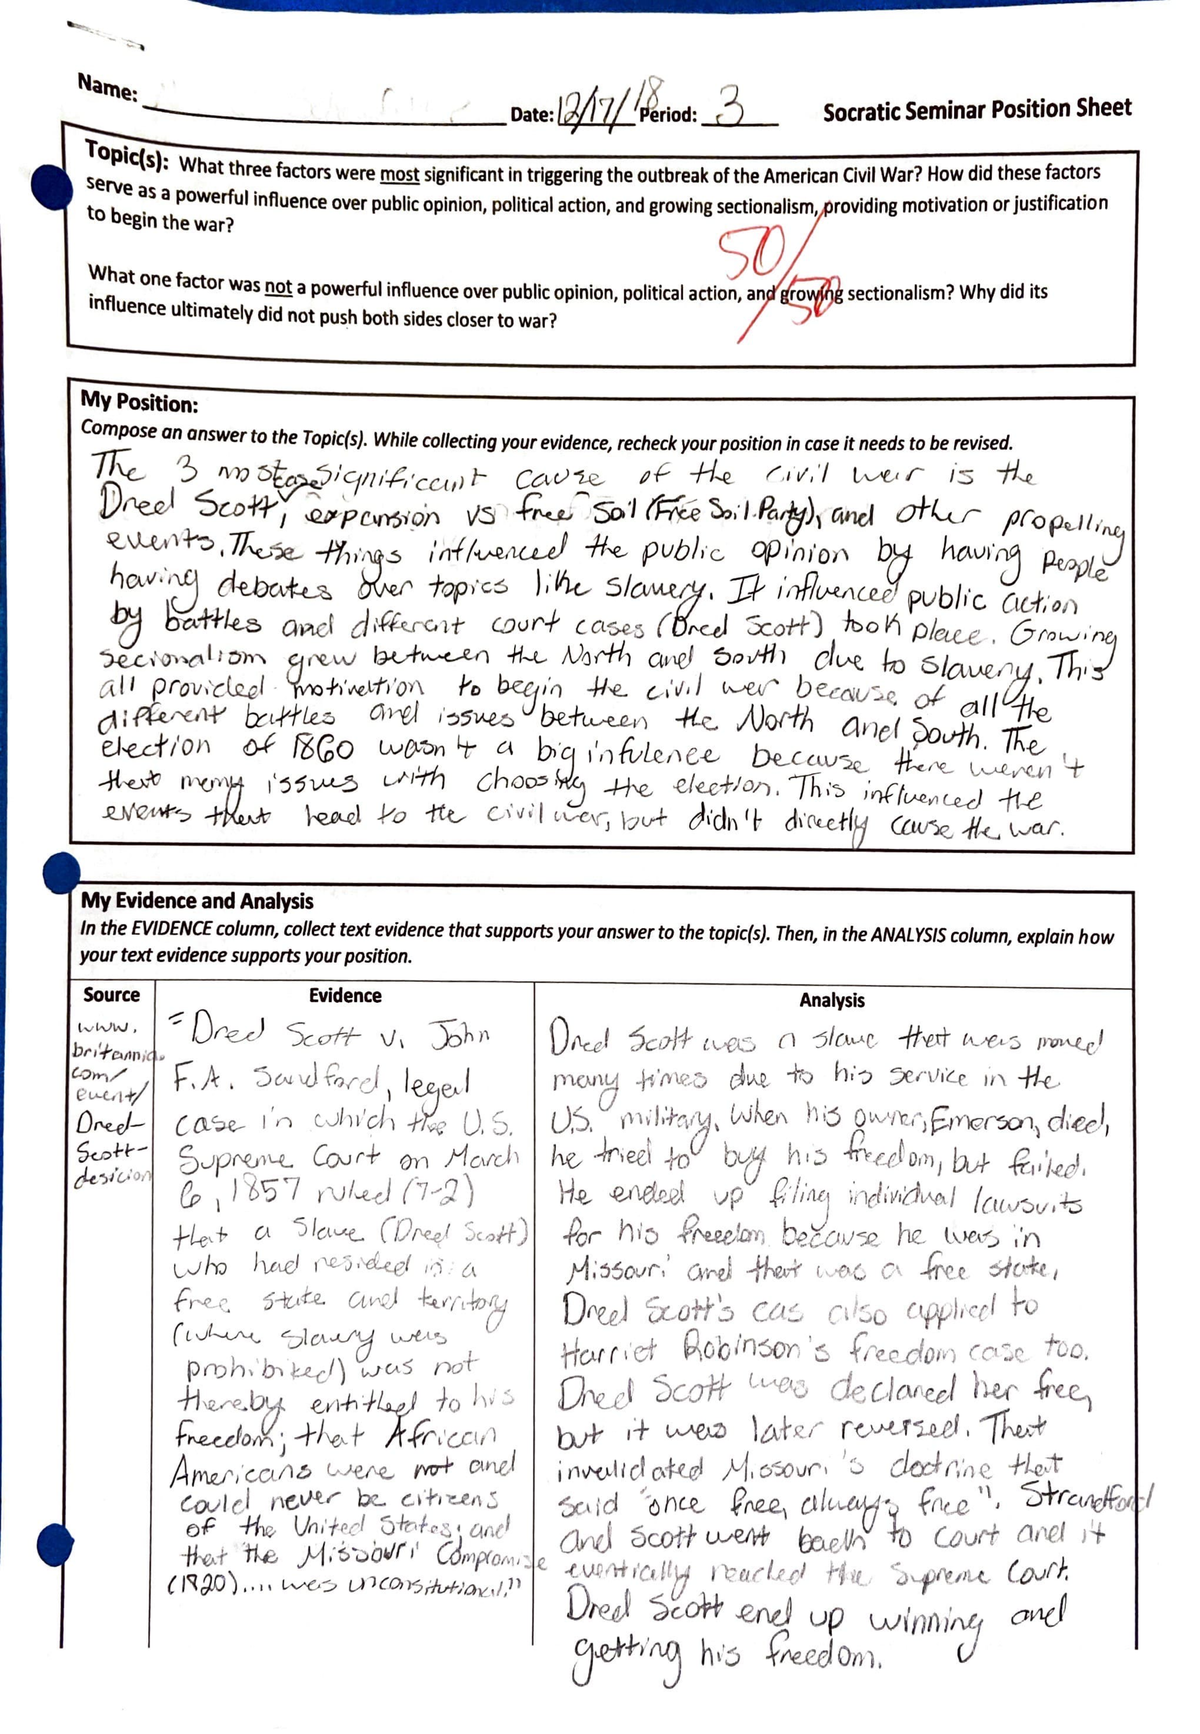 Name:
Date: 12/17/18 Period: 3 Socratic Seminar Position Sheet
Topic(s): What three factors were most significant in triggering the outbreak of the American Civil War? How did these factors
serve as a powerful influence over public opinion, political action, and growing sectionalism, providing motivation or justification
to begin the war?
50/50
What one factor was not a powerful influence over public opinion, political action, and growing sectionalism? Why did its
influence ultimately did not push both sides closer to war?
My Position:
Compose an answer to the Topic(s). While collecting your evidence, recheck your position in case it needs to be revised.
The 3 most significant cause of the civil war is the
Dred Scott case, expansion vs free soil (Free Soil Party), and other propelling
events. These things influenced the public opinion by having people
having debates over topics like slavery. It influenced public action
by battles and different court cases (Dred Scott) took place. Growing
secionalism grew between the North and South due to slavery. This
all provided motivation to begin the civil war because of all the
different battles and issues between the North and South. The
election of 1860 wasn't a big infulence because there weren't
that many issues with choosing the election. This influenced the
events that lead to the civil war, but didn't directly cause the war.
My Evidence and Analysis
In the EVIDENCE column, collect text evidence that supports your answer to the topic(s). Then, in the ANALYSIS column, explain how
your text evidence supports your position.
Source
www.
britannica.
com/
event/
Dred-
Scott-
desicion
Evidence
"Dred Scott v. John
F.A. Sandford, legal
case in which the U.S.
Supreme Court on March
6, 1857 ruled (7-2)
that a slave (Dred Scott)
who had resided in a
free state and territory
(where slavry was
prohibited) was not
thereby entitled to his
freedom; that African
Americans were not and
could never be citizens
of the United States; and
that the Missouri Compromise
(1820).... was unconsitutional."
Analysis
Dred Scott was a slave that was moved
many times due to his service in the
U.S. military. When his owner, Emerson, died,
he tried to buy his freedom, but failed.
He ended up filing individual lawsuits
for his freedom because he was in
Missouri and that was a free state.
Dred Scott's cas also applied to
Harriet Robinson's freedom case too.
Dred Scott was declared her free,
but it was later reversed. That
invalidated Missouri's doctrine that
said "once free, always free". Strandford
and Scott went back to court and it
eventically reached the Supreme Court.
Dred Scott end up winning and
getting his freedom.